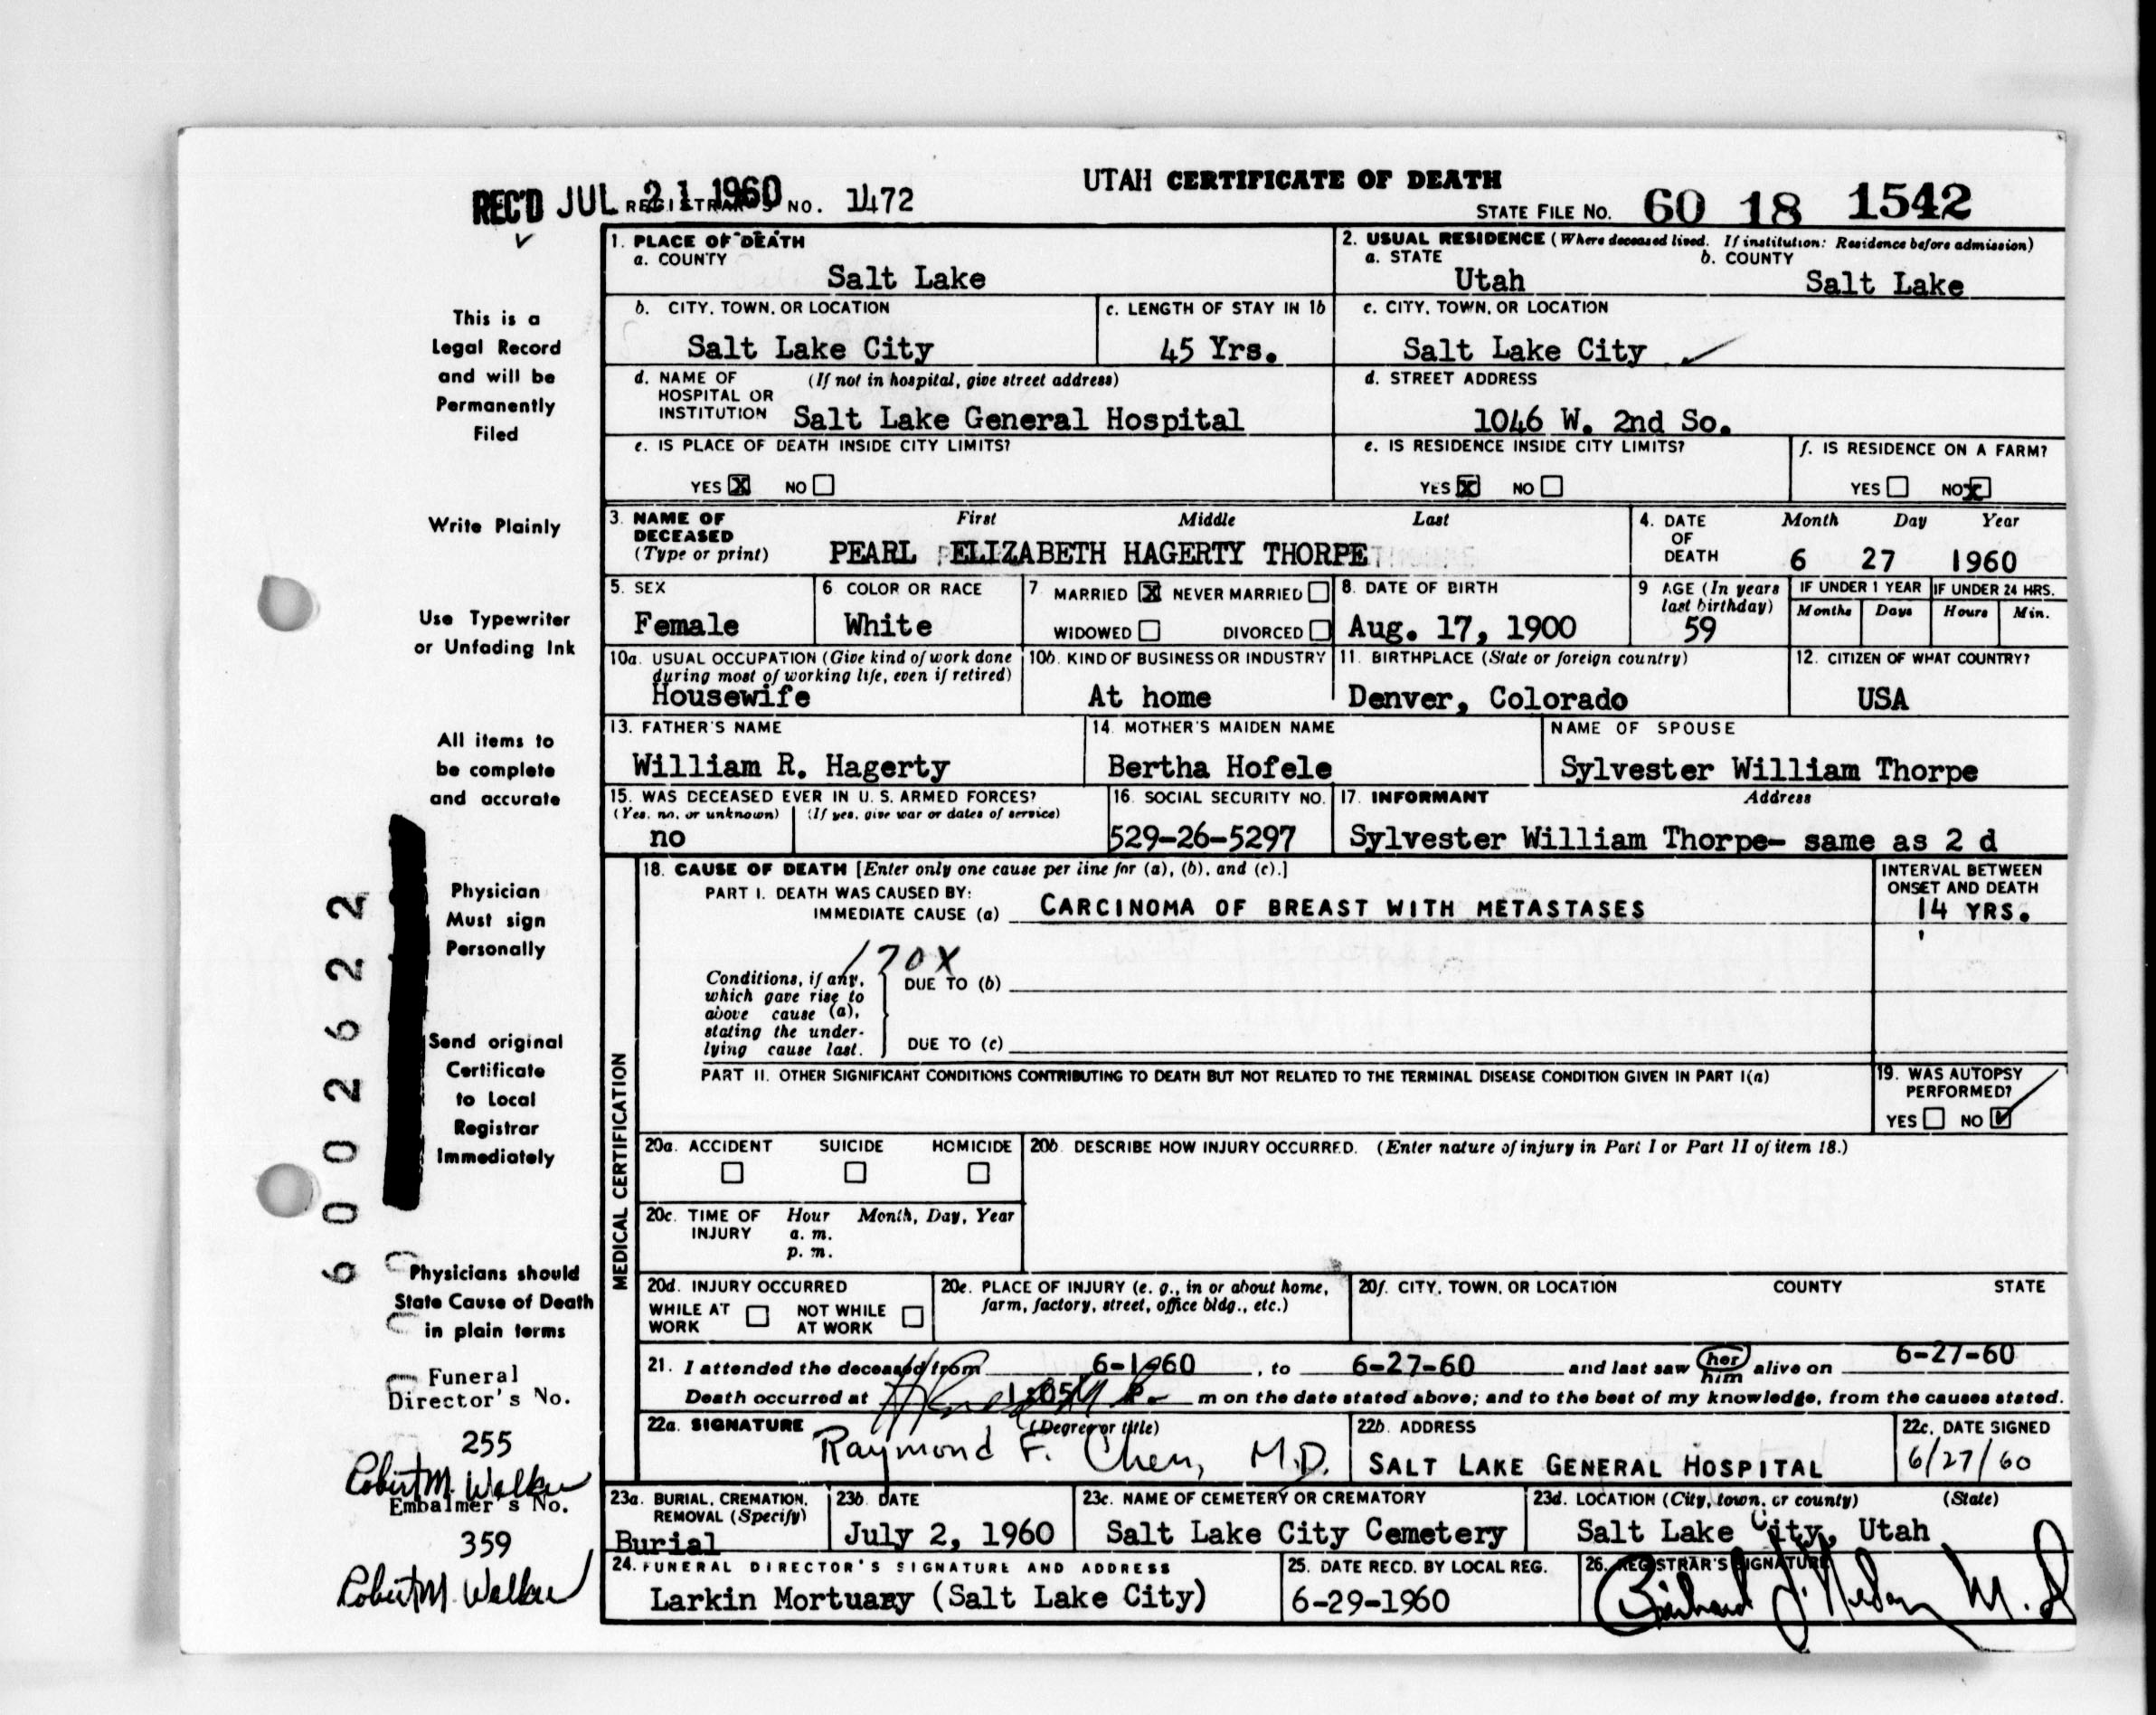 UTAH CERTIFICATE OF DEATH
REC'D JUL 21 1960 REGISTRAR'S NO. 1472
STATE FILE NO. 60 18 1542
1. PLACE OF DEATH
a. COUNTY
Salt Lake
2. USUAL RESIDENCE (Where deceased lived. If institution: Residence before admission)
a. STATE b. COUNTY
Utah Salt Lake
b. CITY, TOWN, OR LOCATION
Salt Lake City
c. LENGTH OF STAY IN 1b
45 Yrs.
c. CITY, TOWN, OR LOCATION
Salt Lake City
d. NAME OF (If not in hospital, give street address)
HOSPITAL OR
INSTITUTION Salt Lake General Hospital
d. STREET ADDRESS
1046 W. 2nd So.
e. IS PLACE OF DEATH INSIDE CITY LIMITS?
YES X NO
e. IS RESIDENCE INSIDE CITY LIMITS?
YES X NO
f. IS RESIDENCE ON A FARM?
YES NO X
3. NAME OF First Middle Last
DECEASED
(Type or print) PEARL ELIZABETH HAGERTY THORPE
4. DATE Month Day Year
OF
DEATH 6 27 1960
5. SEX
Female
6. COLOR OR RACE
White
7. MARRIED X NEVER MARRIED
WIDOWED DIVORCED
8. DATE OF BIRTH
Aug. 17, 1900
9. AGE (In years
last birthday)
59
IF UNDER 1 YEAR
Months Days
IF UNDER 24 HRS.
Hours Min.
10a. USUAL OCCUPATION (Give kind of work done
during most of working life, even if retired)
Housewife
10b. KIND OF BUSINESS OR INDUSTRY
At home
11. BIRTHPLACE (State or foreign country)
Denver, Colorado
12. CITIZEN OF WHAT COUNTRY?
USA
13. FATHER'S NAME
William R. Hagerty
14. MOTHER'S MAIDEN NAME
Bertha Hofele
NAME OF SPOUSE
Sylvester William Thorpe
15. WAS DECEASED EVER IN U. S. ARMED FORCES?
(Yes, no, or unknown) (If yes, give war or dates of service)
no
16. SOCIAL SECURITY NO.
529-26-5297
17. INFORMANT Address
Sylvester William Thorpe- same as 2 d
MEDICAL CERTIFICATION
18. CAUSE OF DEATH [Enter only one cause per line for (a), (b), and (c).]
PART I. DEATH WAS CAUSED BY:
IMMEDIATE CAUSE (a) CARCINOMA OF BREAST WITH METASTASES
INTERVAL BETWEEN
ONSET AND DEATH
14 YRS.
170X
Conditions, if any,
which gave rise to
above cause (a),
stating the under-
lying cause last.
DUE TO (b)
DUE TO (c)
PART II. OTHER SIGNIFICANT CONDITIONS CONTRIBUTING TO DEATH BUT NOT RELATED TO THE TERMINAL DISEASE CONDITION GIVEN IN PART I(a)
19. WAS AUTOPSY
PERFORMED?
YES NO
20a. ACCIDENT SUICIDE HOMICIDE
20b. DESCRIBE HOW INJURY OCCURRED. (Enter nature of injury in Part I or Part II of item 18.)
20c. TIME OF Hour Month, Day, Year
INJURY a. m.
p. m.
20d. INJURY OCCURRED
WHILE AT NOT WHILE
WORK AT WORK
20e. PLACE OF INJURY (e. g., in or about home,
farm, factory, street, office bldg., etc.)
20f. CITY, TOWN, OR LOCATION COUNTY STATE
21. I attended the deceased from 6-1-60, to 6-27-60 and last saw her him alive on 6-27-60
Death occurred at 1:05 P. m on the date stated above; and to the best of my knowledge, from the causes stated.
22a. SIGNATURE (Degree or title)
Raymond F. Chen, M.D.
22b. ADDRESS
SALT LAKE GENERAL HOSPITAL
22c. DATE SIGNED
6/27/60
23a. BURIAL, CREMATION,
REMOVAL (Specify)
Burial
23b. DATE
July 2, 1960
23c. NAME OF CEMETERY OR CREMATORY
Salt Lake City Cemetery
23d. LOCATION (City, town, or county) (State)
Salt Lake City, Utah
24. FUNERAL DIRECTOR'S SIGNATURE AND ADDRESS
Larkin Mortuary (Salt Lake City)
25. DATE RECD. BY LOCAL REG.
6-29-1960
26. REGISTRAR'S SIGNATURE
This is a
Legal Record
and will be
Permanently
Filed
Write Plainly
Use Typewriter
or Unfading Ink
All items to
be complete
and accurate
Physician
Must sign
Personally
Send original
Certificate
to Local
Registrar
Immediately
Physicians should
State Cause of Death
in plain terms
Funeral
Director's No.
255
Robert M. Walker
Embalmer's No.
359
Robert M. Walker
6002622